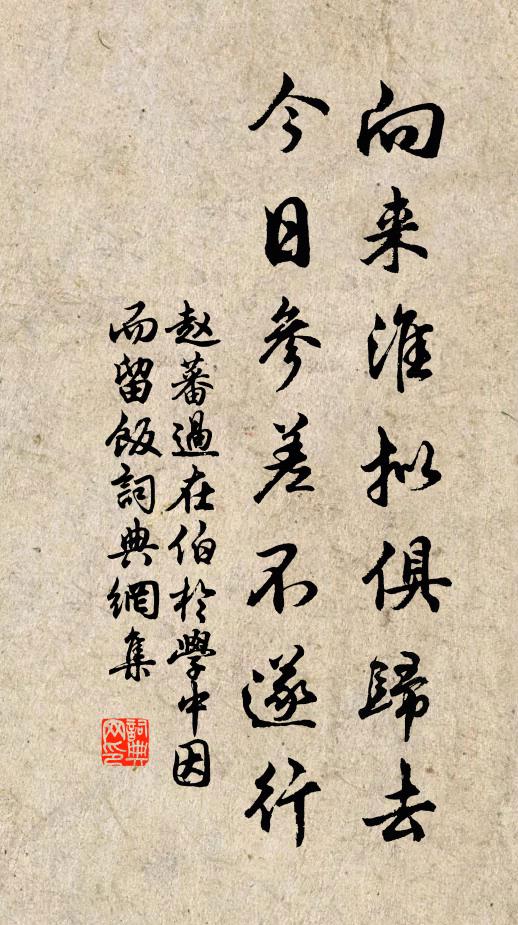 向来准拟俱歸去
今日參差不遂行
赵蕃過在伯於學中因
而留飯詞典網集
詞典
网印